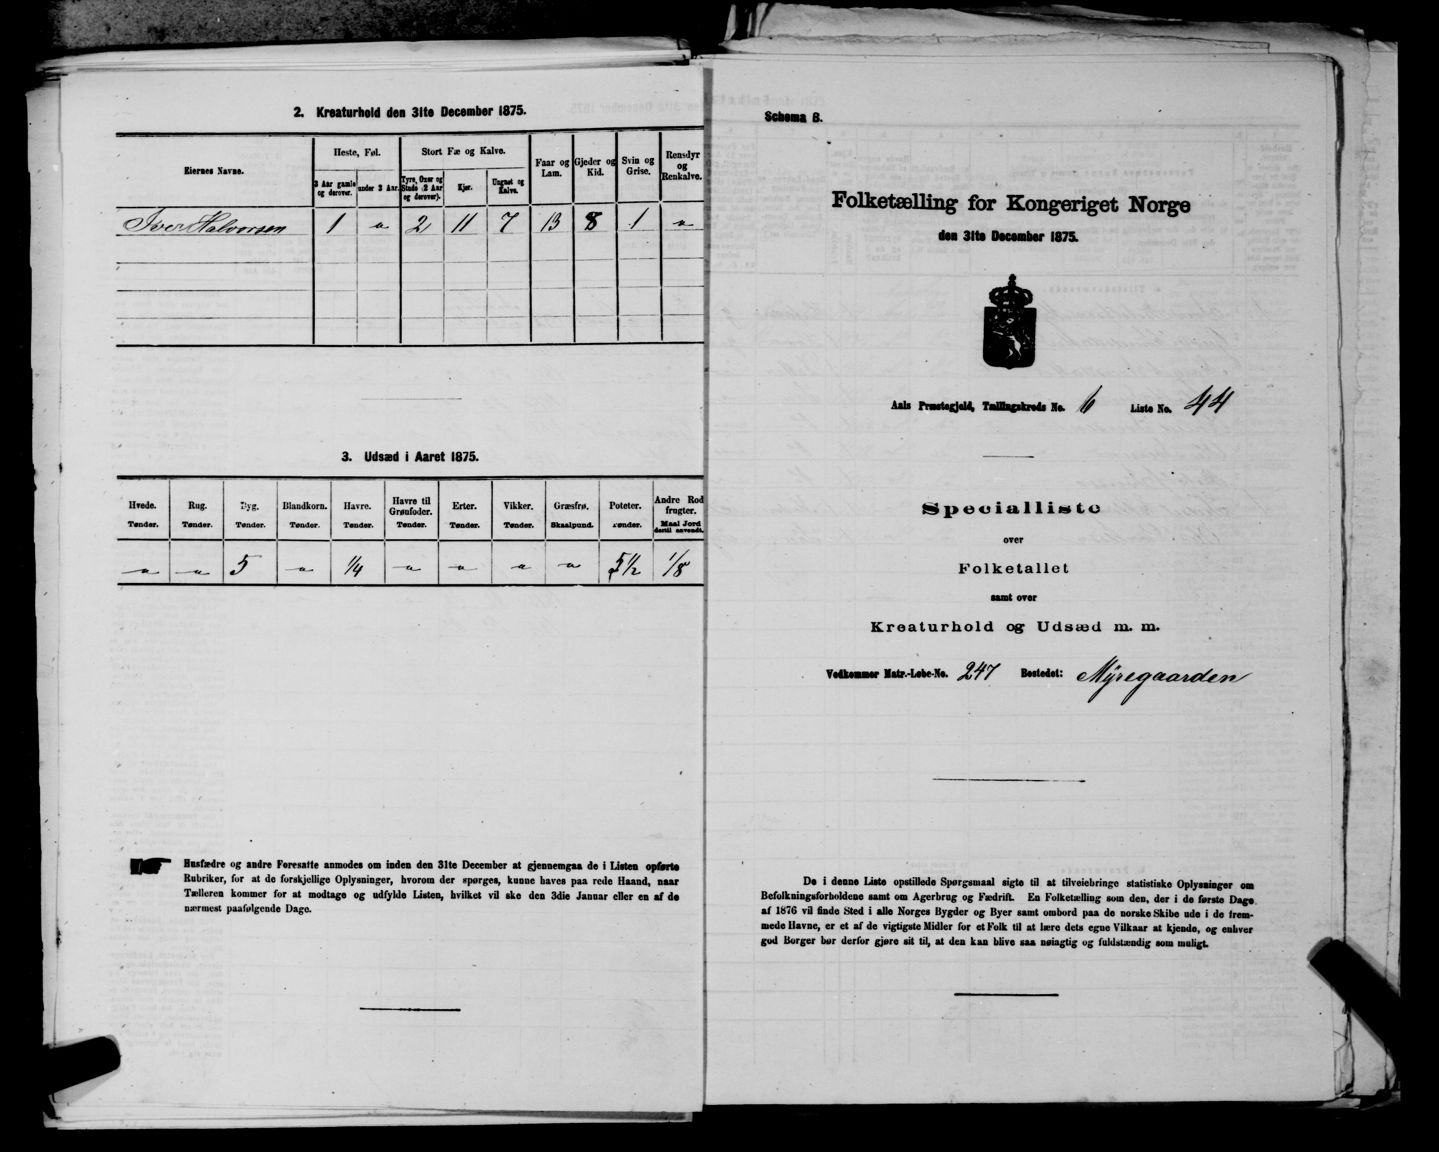 2. Kreaturhold den 31te December 1875.
Eiernes Navne.
Heste, Føl.
3 Aar gamle og derover.
under 3 Aar.
Stort Fæ og Kalve.
Tyre, Oxer og Stude (2 Aar og derover).
Kjør.
Ungnøt og Kalve.
Faar og Lam.
Gjeder og Kid.
Svin og Grise.
Rensdyr og Renkalve.
Iver Halvorsen 1 " 2 11 7 13 8 1 "
3. Udsæd i Aaret 1875.
Hvede. Rug. Byg. Blandkorn. Havre. Havre til Grønfoder. Erter. Vikker. Græsfrø. Poteter. Andre Rodfrugter.
Tønder. Tønder. Tønder. Tønder. Tønder. Tønder. Tønder. Tønder. Skaalpund. Tønder. Maal Jord dertil anvendt.
" " 5 " 1/4 " " " " 5 1/2 1/8
Husfædre og andre Foresatte anmodes om inden den 31te December at gjennemgaa de i Listen opførte
Rubriker, for at de forskjellige Oplysninger, hvorom der spørges, kunne haves paa rede Haand, naar
Tælleren kommer for at modtage og udfylde Listen, hvilket vil ske den 3die Januar eller en af de
nærmest paafølgende Dage.
Schema B.
Folketælling for Kongeriget Norge
den 31te December 1875.
Aals Præstegjeld, Tællingskreds No. 6 Liste No. 44
Specialliste
over
Folketallet
samt over
Kreaturhold og Udsæd m. m.
Vedkommer Matr.-Løbe-No. 247 Bostedet: Myregaarden
De i denne Liste opstillede Spørgsmaal sigte til at tilveiebringe statistiske Oplysninger om
Befolkningsforholdene samt om Agerbrug og Fædrift. En Folketælling som den, der i de første Dage
af 1876 vil finde Sted i alle Norges Bygder og Byer samt ombord paa de norske Skibe ude i de frem-
mede Havne, er et af de vigtigste Midler for et Folk til at lære dets egne Vilkaar at kjende, og enhver
god Borger bør derfor gjøre sit til, at den kan blive saa nøiagtig og fuldstændig som muligt.